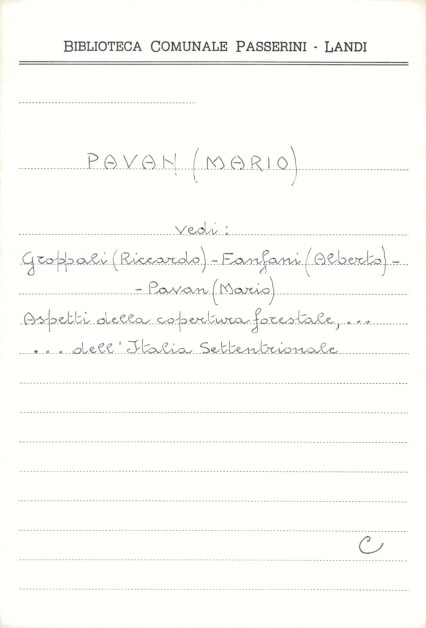 BIBLIOTECA COMUNALE PASSERINI - LANDI
PAVAN (MARIO)
vedi:
Groppali (Riccardo) - Fanfani (Alberto) -
- Pavan (Mario)
Aspetti della copertura forestale, ...
... dell'Italia Settentrionale
C